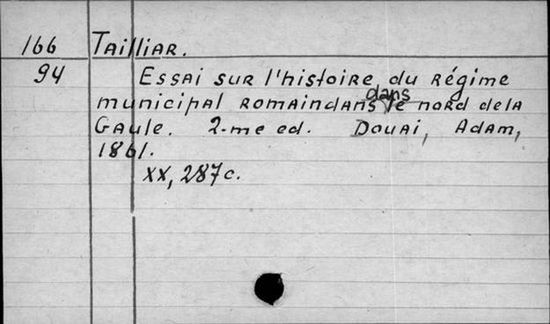 166 Tailliar.
94 Essai sur l'histoire du régime
municipal romain dans dans le nord de la
Gaule. 2-me ed. Douai, Adam,
1861.
XX, 287 c.